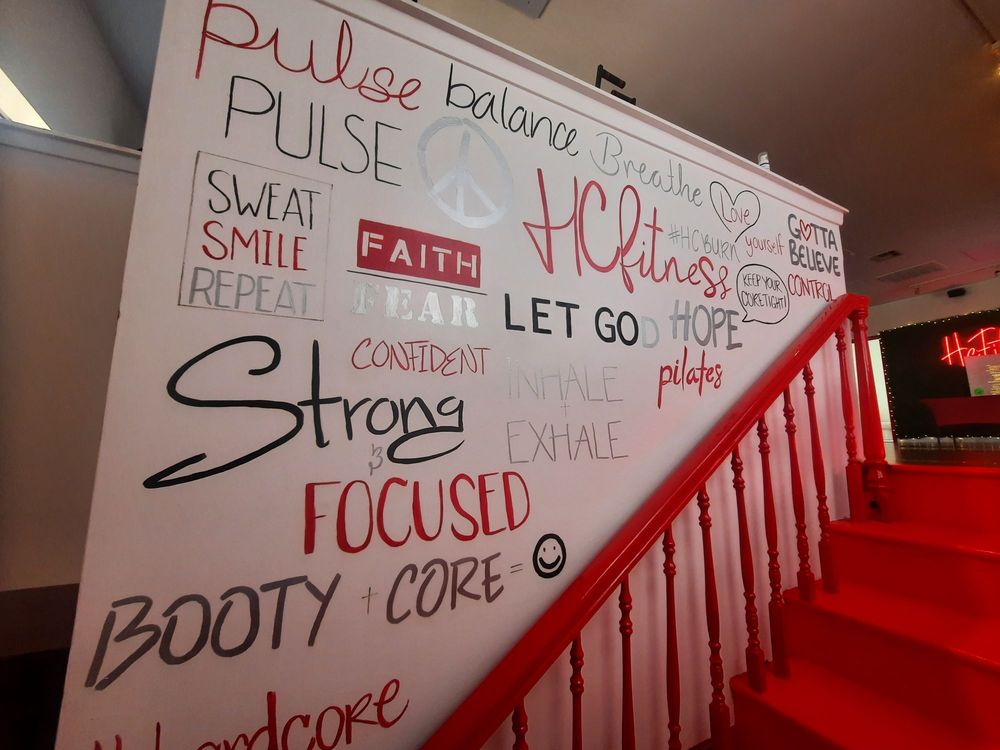 pulse
PULSE
balance
Breathe
Love
yourself
GOTTA
BELIEVE
CONTROL
SWEAT
SMILE
REPEAT
FAITH
FEAR
HCfitness
#HCVBURN
KEEP YOUR
CORE TIGHT!
LET GOD
HOPE
CONFIDENT
Strong
&
FOCUSED
INHALE
+
EXHALE
pilates
BOOTY + CORE =
#hardcore